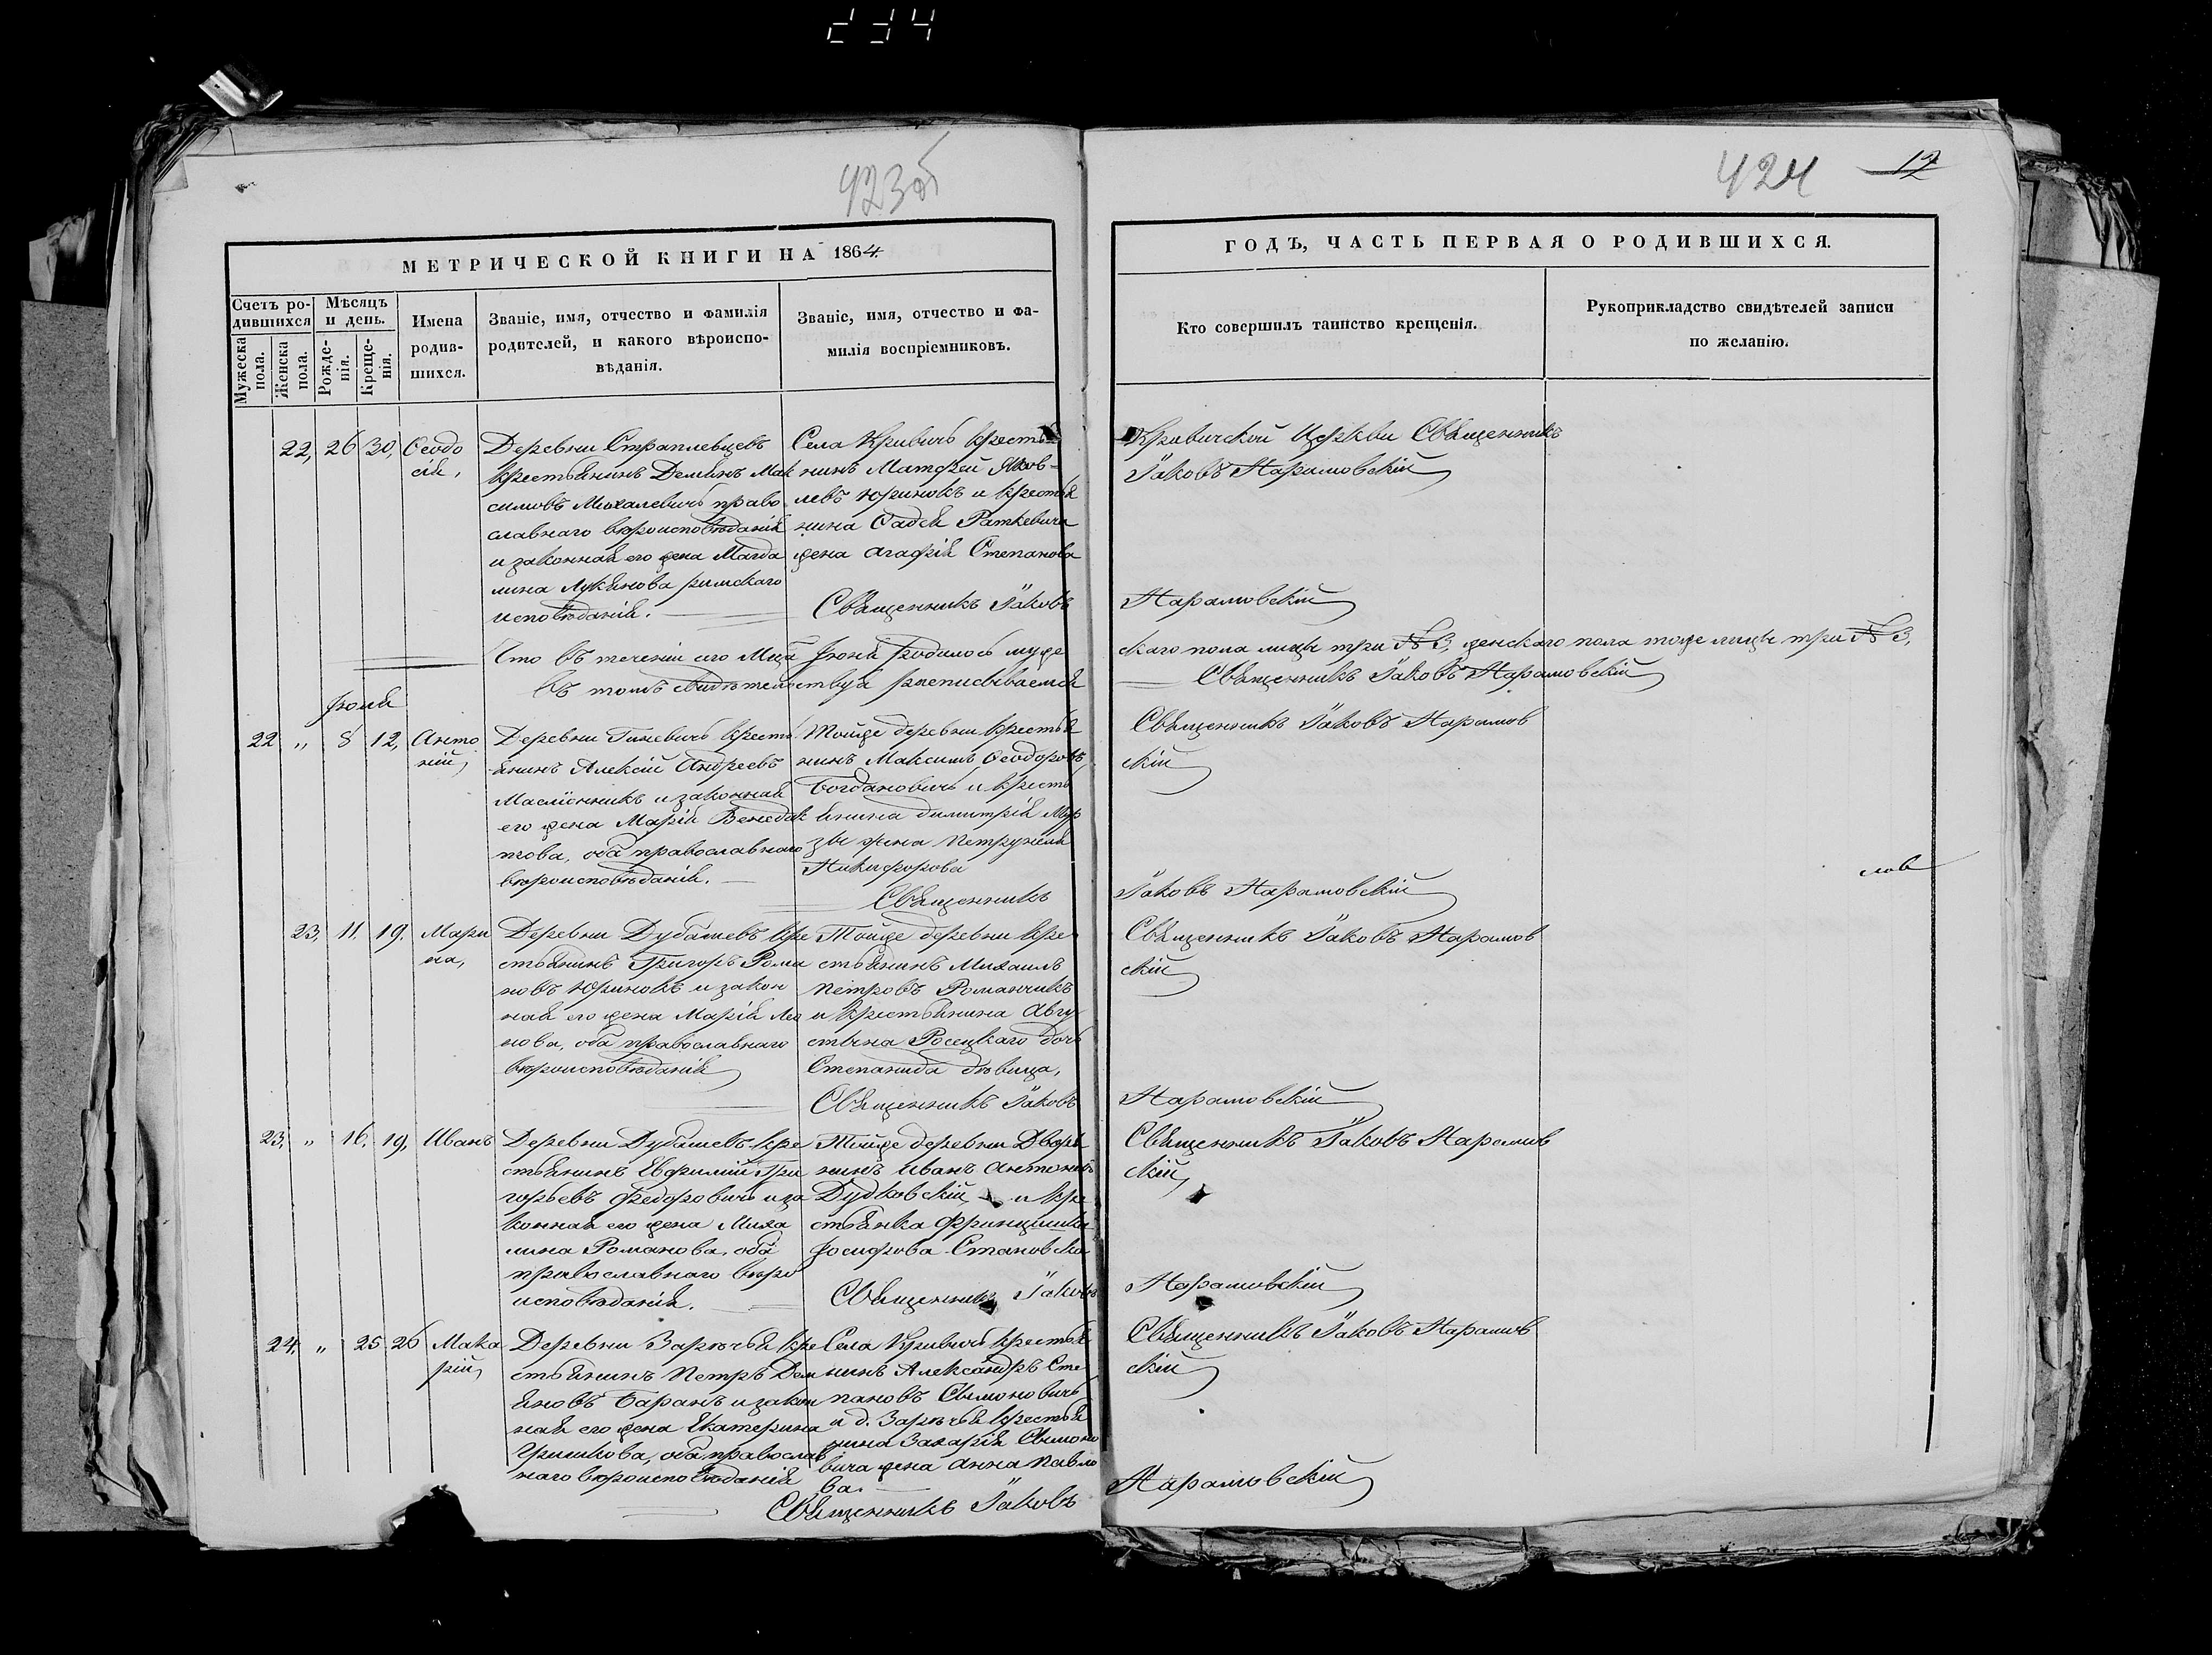 234
423об
424 12
МЕТРИЧЕСКОЙ КНИГИ НА 1864
ГОДЪ, ЧАСТЬ ПЕРВАЯ О РОДИВШИХСЯ.
Счетъ ро-
дившихся
Мужеска
пола.
Женска
пола.
Мѣсяцъ
и день.
Рожде-
нія.
Креще-
нія.
Имена
родив-
шихся.
Званіе, имя, отчество и фамилія
родителей, и какого вѣроиспо-
вѣданія.
Званіе, имя, отчество и фа-
милія воспріемниковъ.
Кто совершилъ таинство крещенія.
Рукоприкладство свидѣтелей записи
по желанію.
22, 26 30, Ѳеодо
сія,
Деревни Страплевцевъ
крестьянинъ Демьянъ Мак
симовъ Михалевичъ право
славнаго вѣроисповѣданія
и законная его жена Магда
лина Лукьянова римскаго
исповѣданія.
Села Кривичъ крестья
нинъ Матфей Яков-
левъ Юринокъ и крестья
нина Фадея Раткевича
жена Агафія Степанова
Священникъ Іаковъ Нарамовскій
Кривичской Церкви Священникъ
Іаковъ Нарамовскій
Что въ теченіи сего Мца Іюня родилось муже
скаго пола лицъ три № 3, женскаго пола тоже лицъ три № 3,
въ томъ свидѣтельствуя росписываемся
Священникъ Іаковъ Нарамовскій
Іюля
22 „ 8 12, Анто
ній,
Деревни Гиневичъ кресть
янинъ Алексій Андреевъ
Маслiонникъ и законная
его жена Марія Венедик
това, оба православнаго
вѣроисповѣданія.
Тойже деревни крестья
нинъ Максимъ Ѳеодоровъ
Богдановичъ и кресть
янина Димитрія Мур
зы жена Петрунеля
Никифорова
Священникъ Іаковъ Нарамовскій
Священникъ Іаковъ Нарамов
скій
слов
23, 11. 19. Мари
на,
Деревни Дубашевъ кре
стьянинъ Григоръ Рома
новъ Юринокъ и закон
ная его жена Марія Лео
нова, оба православнаго
вѣроисповѣданія
Тойже деревни кре
стьянинъ Михаилъ
Петровъ Романчикъ
и крестьянина Авгу
стына Росецкаго дочь
Степанида дѣвица,
Священникъ Іаковъ Нарамовскій
Священникъ Іаковъ Нарамов
скій
23, „ 16. 19, Иванъ
Деревни Дубашевъ кре
стьянинъ Евфимій Гри
горьевъ Федоровичъ и за
конная его жена Миха
лина Романова, оба
православнаго вѣро
исповѣданія.
Тойже деревни Дворя
нинъ Иванъ Антоновъ
Дудковскій и кре
стьянка Францишка
Іосифова Становска
Священникъ Іаковъ Нарамовскій
Священникъ Іаковъ Нарамов
скій,
24, „ 25 26 Мака
рій,
Деревни Зарѣчья кре
стьянинъ Петръ Дем
яновъ Баранъ и закон
ная его жена Екатерина
Гришкова, оба православ
наго вѣроисповѣданія
Села Кривичъ крестья
нинъ Александръ Сте
пановъ Сымоновичъ
и д. Зарѣчья крестья
нина Захарія Сымоно
вича жена Анна Павло
ва.
Священникъ Іаковъ Нарамовскій
Священникъ Іаковъ Нарамов
скій